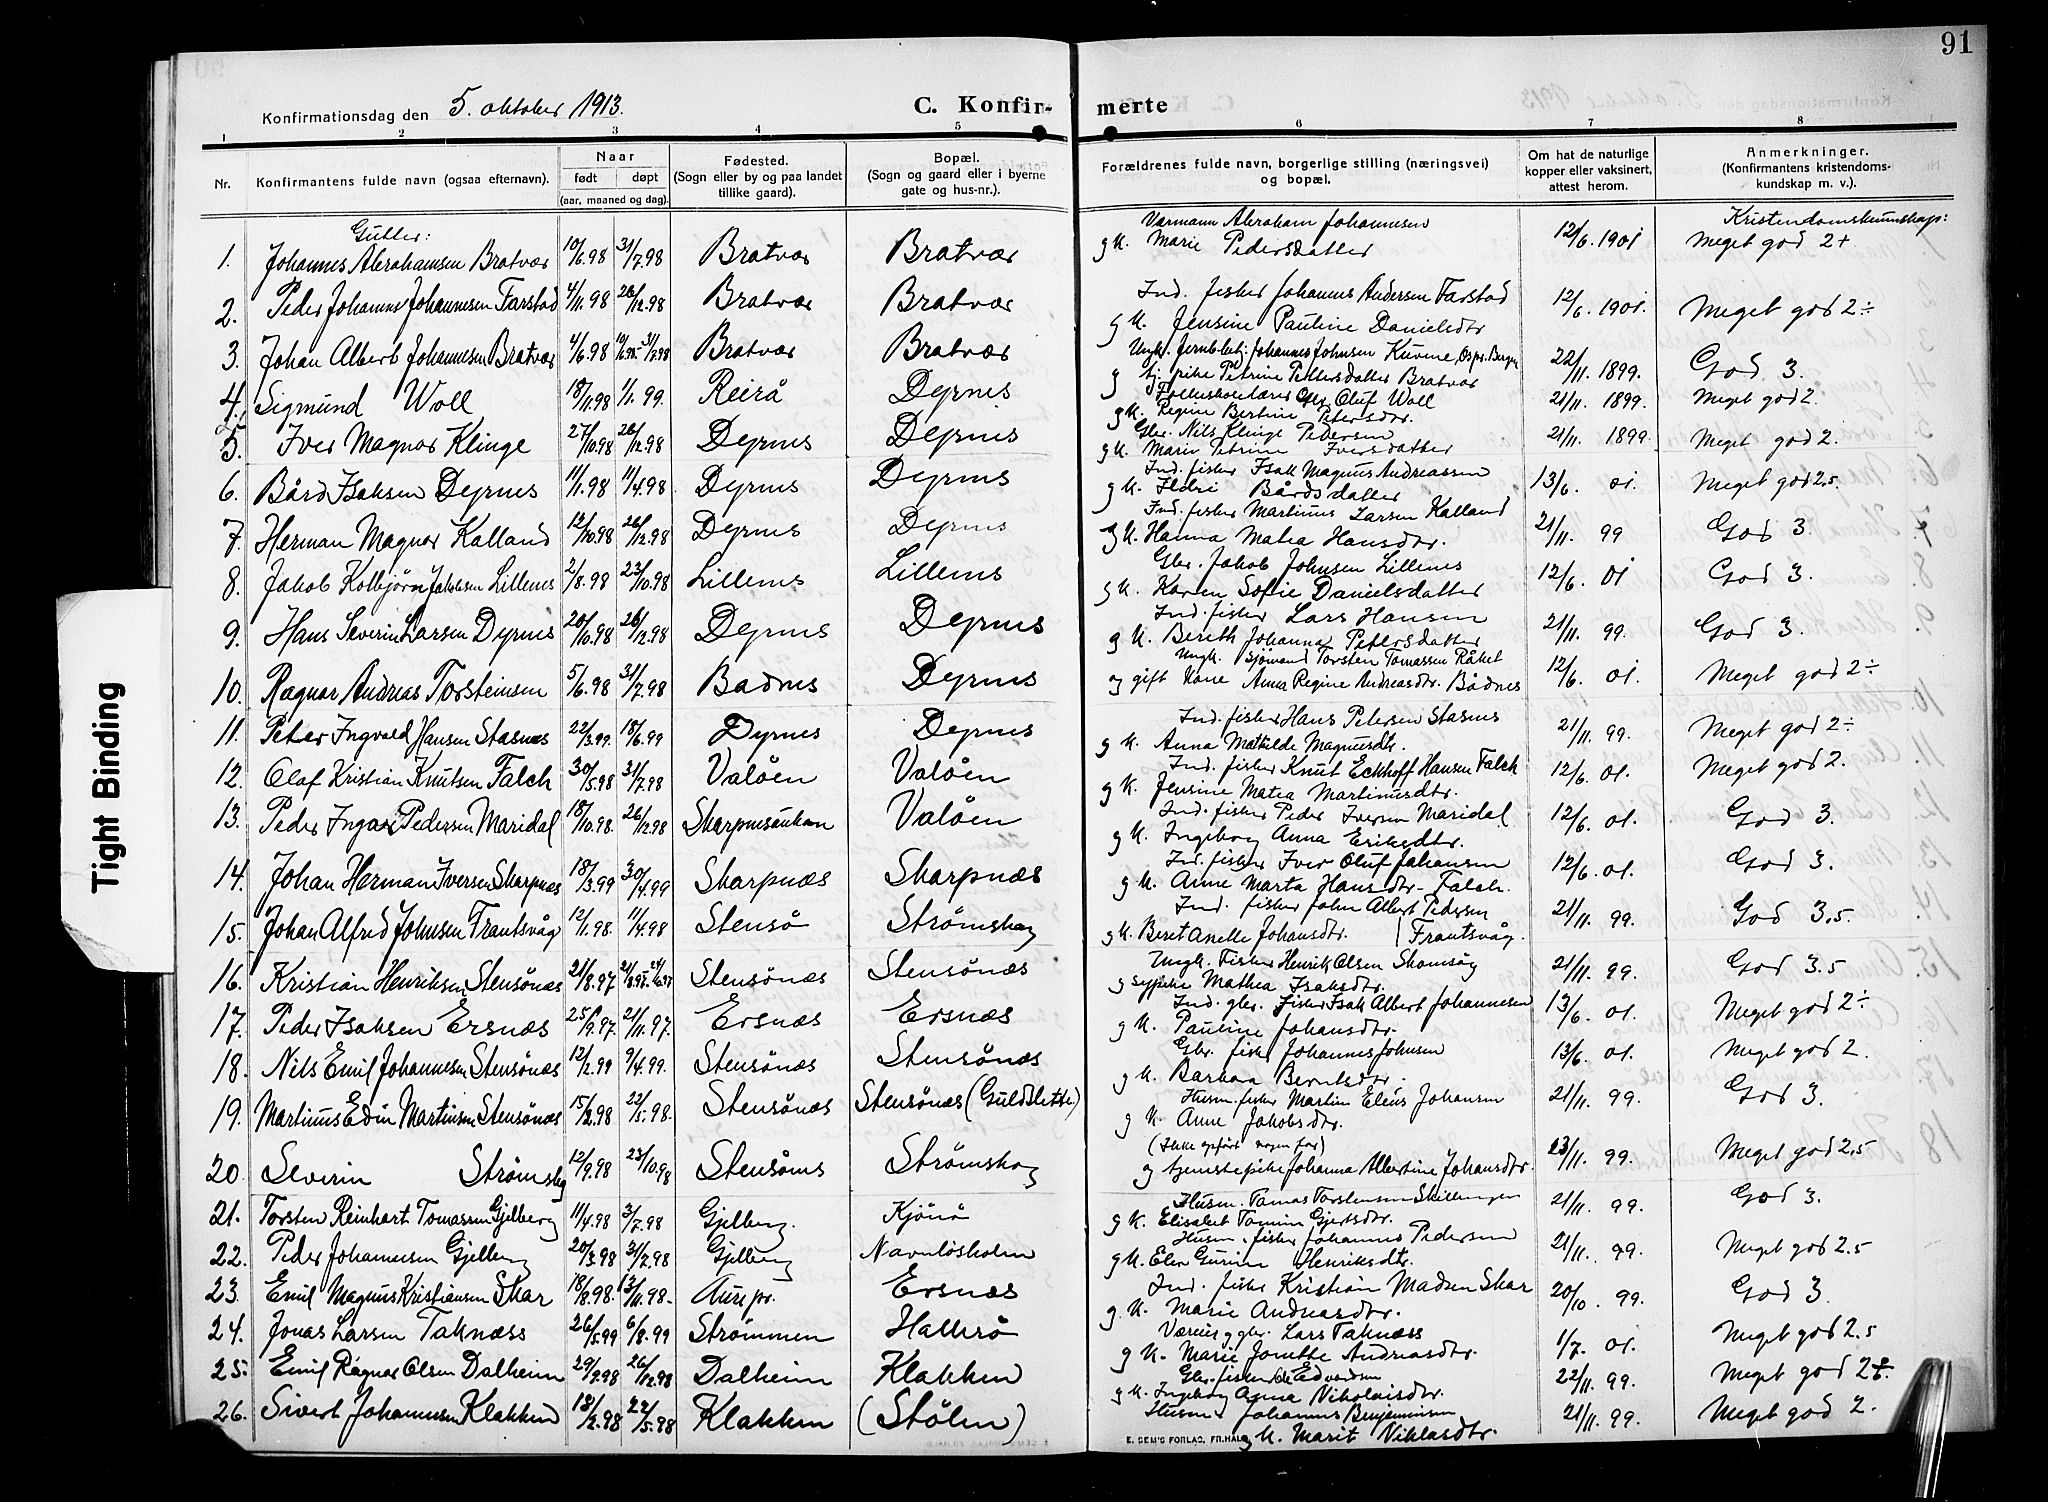 91
Konfirmationsdag den 5. oktober 1913.
C. Konfir- merte
1 2 3 4 5 6 7 8
Nr. Konfirmantens fulde navn (ogsaa efternavn). Naar født døpt (aar, maaned og dag). Fødested. (Sogn eller by og paa landet tillike gaard). Bopæl. (Sogn og gaard eller i byerne gate og hus-nr.). Forældrenes fulde navn, borgerlige stilling (næringsvei) og bopæl. Om hat de naturlige kopper eller vaksinert, attest herom. Anmerkninger. (Konfirmantens kristendoms-kundskap m. v.).
Gutter: Kristendomskunnskap:
1. Johannes Abrahamsen Bratvær 10/6.98 31/7.98 Bratvær Bratvær Varmann Abraham Johannesen g K. Marie Pedersdatter 12/6.1901 Meget god 2+
2. Peder Johannes Johannesen Farstad 4/11.98 26/12.98 Bratvær Bratvær Ind. fisker Johannes Andersen Farstad g K. Jensine Pauline Danielsdtr 12/6.1901. Meget god 2÷
3. Johan Albert Johannesen Bratvær 4/6.98 Bratvær Bratvær Ungk. Johannes Johnsen g tj. pike Petrine Pettersdatter Bratvær 22/11.1899. God 3.
4. Sigmund Woll 18/11.98 1/1.99. Reirå Dyrnes Oluf Woll g K. Regine Bertine Petersdtr. 21/11.1899. Meget god 2.
5. Iver Magnar Klinge 27/10.98 26/12.98 Dyrnes Dyrnes Gbr. Nils Klinge Pedersen g K. Maren Petrine Iversdatter 21/11.1899 Meget god 2.
6. Bård Isaksen Dyrnes 11/1.98 11/4.98 Dyrnes Dyrnes Ind. fisker Isak Magnus Andreassen g K. Ildri Bårdsdatter 13/6. 01. Meget god 2.5.
7. Herman Magnar Kalland 12/10.98 26/12.98 Dyrnes Dyrnes Ind. fisker Martinus Larsen Kalland g K. Hanna Matea Hansdtr. 21/11. 99 God 3.
8. Jakob Kolbjørn Jakobsen Lillenes 2/8.98 23/10.98 Lillenes Lillenes Gbr. Jakob Johnsen Lillenes g K. Karen Sofie Danielsdatter 12/6. 01 God 3.
9. Hans Severin Larsen Dyrnes 20/10.98 26/12.98 Dyrnes Dyrnes Ind. fisker Lars Hansen g K. Bereth Johanna Petersdatter 21/11. 99. God 3.
10. Ragnar Andreas Torsteinsen 5/6.98 31/7.98 Badnes Dyrnes Ungk. Sjømand Torsten Tomassen Råket og gift kone Anna Regine Andreasdtr. Bådnes 12/6. 01. Meget god 2÷
11. Peter Ingvald Hansen Stasnes 22/3.99. 18/6.99 Dyrnes Dyrnes Ind. fisker Hans Petersen Stasnes g K. Anna Mathilde Magnusdtr. 21/11. 99. Meget god 2÷
12. Olaf Kristian Knutsen Falch 30/5.98 31/7.98 Valøen Valøen Ind. fisker Knut Eckhoff Hansen Falch g K. Jensine Matea Martinusdtr. 12/6. 01. Meget god 2.
13. Peder Ingar Pedersen Maridal 18/10.98. 26/12.98 Valøen Ind. fisker Peder Iversen Maridal g K. Ingeborg Anna Eriksdtr. 12/6. 01. God 3.
14. Johan Herman Iversen Skarpnæs 18/3.99 30/4.99 Skarpnæs Skarpnæs Ind. fisker Iver Oluf Johansen g K. Anne Marta Hansdtr. Falch. 12/6. 01. God 3.
15. Johan Alfred Johnsen Frantsvåg 12/1.98. 11/4.98 Stensø Strømskag Ind. fisker John Albert Pedersen g K. Beret Anelle Johansdtr. Frantsvåg. 21/11. 99. God 3.5.
16. Kristian Henriksen Stensönæs 21/8.97 Stensönæs Stensönæs Ungk. Fisker Henrik Olsen g sypike Mathea Isaksdtr. 21/11. 99. God 3.5
17. Peder Isaksen Ersnæs 25/9.97. 21/11.97. Ersnæs Ersnæs Ind. gbr. Fisker Isak Albert Johannesen g K. Pauline Johansdtr. 13/6. 01. Meget god 2÷
18. Nils Emil Johannesen Stensönæs 12/2.99 9/4.99. Stensönæs Stensönæs Gbr. fisker Johannes Johnsen g K. Barbara Berntsdtr. 13/6. 01. Meget god 2.
19. Martinus Edin Martinsen Stensönæs 15/2.98 22/5.98. Stensönæs Stensönæs (Guldsletten) Husm. fisker Martin Eleus Johansen g K. Anne Jakobsdtr. 21/11. 99. God 3.
20. Severin Strømskag 12/9.98 23/10.98 Stensönes Strømskag (Ikke opført nogen far) og tjenestepike Johanna Albertine Johansdtr. 23/11. 99. Meget god 2.5
21. Torsten Reinhart Tomassen Gjelberg 11/4.98 3/7.98 Gjelberg. Kjönö Husm. Tomas Torstensen Skillingen g K. Elisabet Tomine Gjertsdtr. 21/11. 99. God 3.
22. Peder Johannesen Gjelberg 20/3.98 31/7.98 Gjelberg Navnlösholm Husm. fisker Johannes Pedersen g K. Elen Gurine Henriksdtr. 21/11. 99. Meget god 2.5
23. Emil Magnus Kristiansen Skar 18/8.98. 13/11.98. Aure pr. Ersnæs Ind. fisker Kristian Madsen Skar g. K. Marie Andreasdtr. 20/10. 99. God 3.
24. Jonas Larsen Taknæss 26/5.99 6/8.99 Strömmen Hallerö Lars Taknæss g K. Marie Jonette Andreasdtr. 1/7. 01. Meget god 2.5
25. Emil Ragnar Olsen Dalheim 29/9.98 26/12.98 Dalheim Klakken Gbr. fisker Ole Edvardsen g K. Ingeborg Anna Nikolaisdtr. 22/11. 99. Meget god 2÷.
26. Sivert Johannesen Klakken 18/2.98 22/5.98 Klakken (Stölen) Husm. Johannes Benjaminsen g K. Marit Niklasdtr. 21/11. 99. Meget god 2.
E. SEM'S FORLAG, FR.HALD
Tight Binding